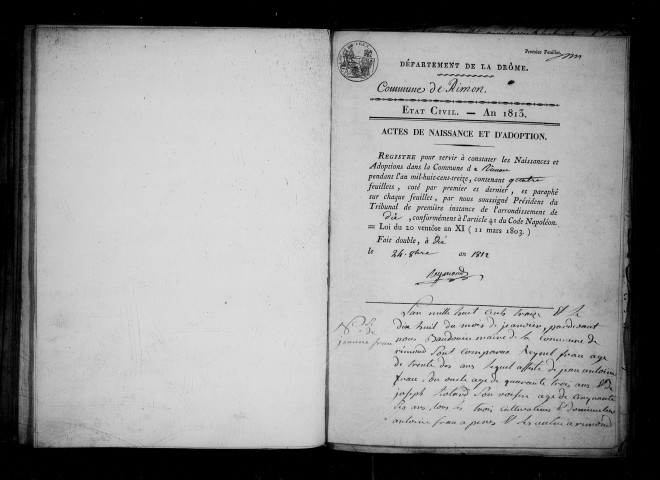 Premier Feuillet
DÉPARTEMENT DE LA DRÔME.
Commune de Rimon.
ETAT CIVIL. — AN 1813.
ACTES DE NAISSANCE ET D'ADOPTION.
REGISTRE pour servir à constater les Naissances et
Adoptions dans la Commune de Rimon
pendant l'an mil-huit-cens-treize, contenant quatre
feuillets, coté par premier et dernier, et paraphé
sur chaque feuillet, par nous soussigné Président du
Tribunal de première instance de l'arrondissement de
Die, conformément à l'article 41 du Code Napoléon.
= Loi du 20 ventôse an XI (11 mars 1803.)
Fait double, à Die
le 24. 8bre an 1812
Reymond
Lan mille huit cents treize & le
dix huit du mois de jeanvier, pardevant
nous maire de la Commune de
rimond sont comparus frau age
de trente des ans lequel assisté de jean antoine
frau, du oncle age de quarante trois ans & de
joseph Roland son voisin age de cinquante
six ans, tous les trois cultivateurs &
antoine frau a rimond
N° 1er
jeanne frau